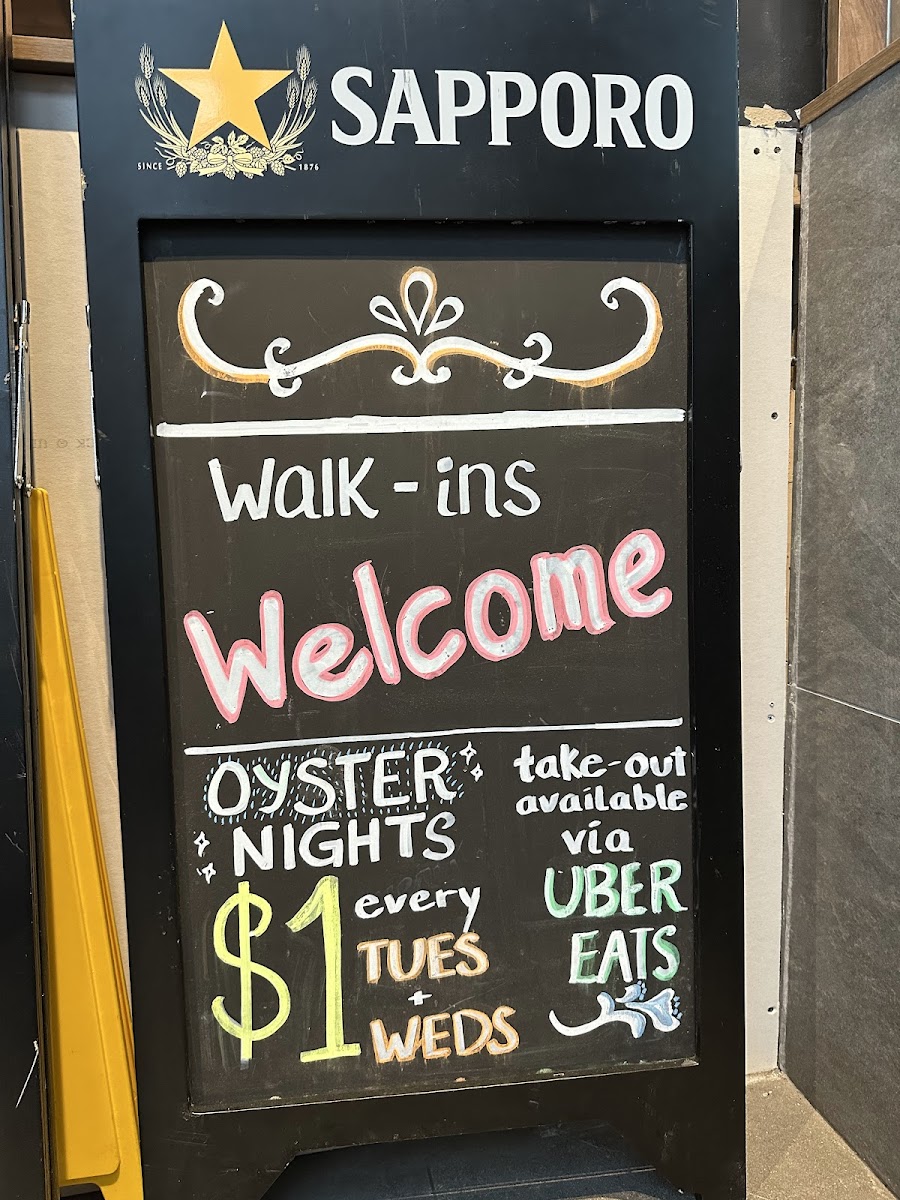 SAPPORO
SINCE 1876
Walk-ins
Welcome
OYSTER
NIGHTS
$1 every
TUES
+
WEDS
take-out
available
via
UBER
EATS